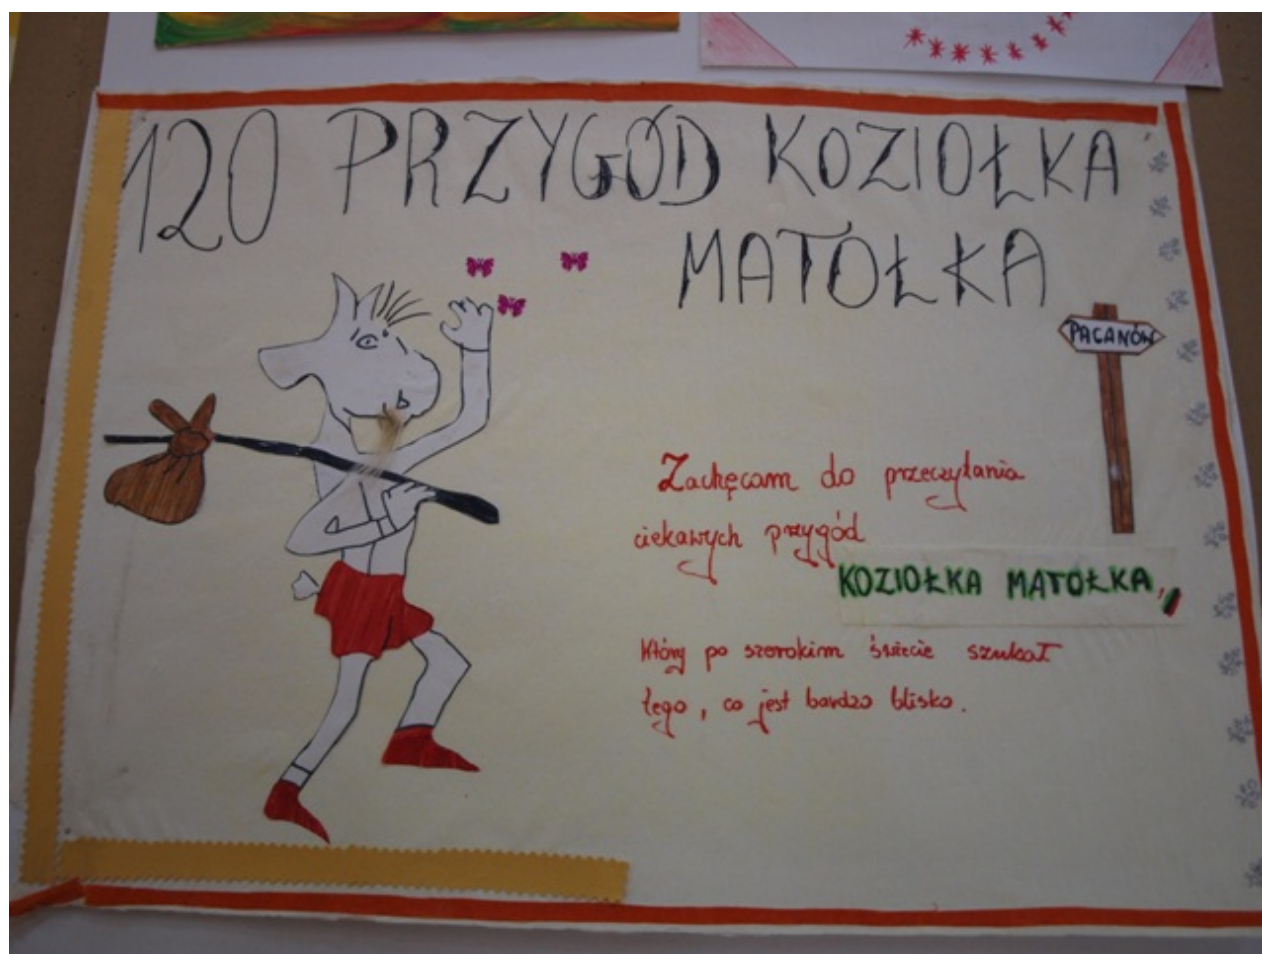 120 PRZYGÓD KOZIOŁKA
MATOŁKA
PACANÓW
Zachęcam do przeczytania
ciekawych przygód
KOZIOŁKA MATOŁKA,
który po szerokim świecie szukał
tego, co jest bardzo blisko.